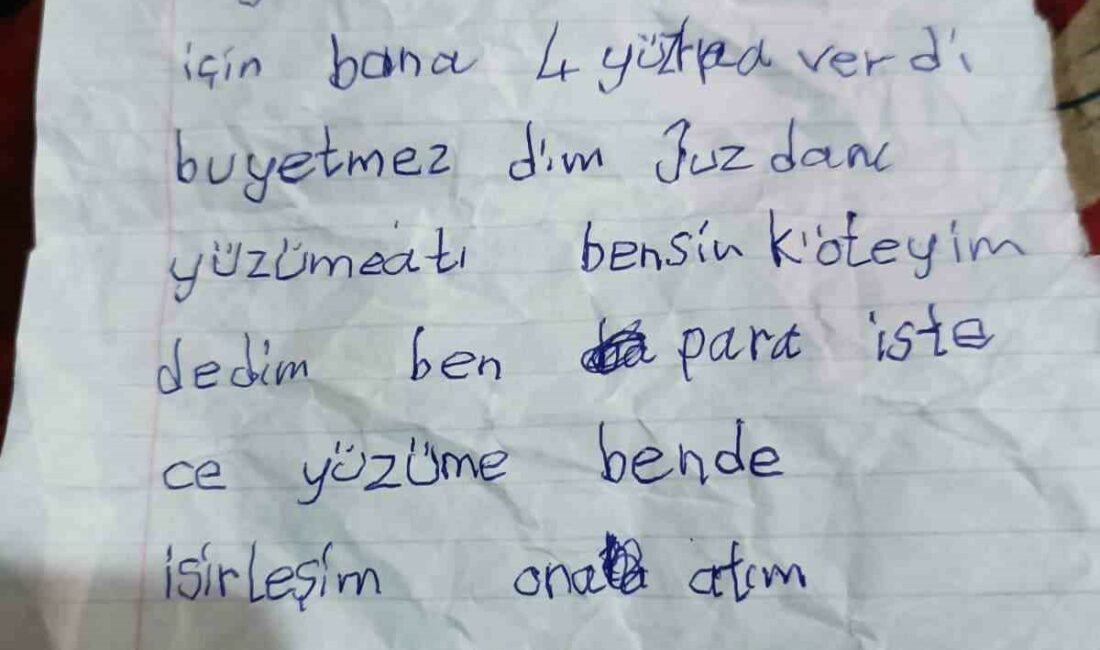 için bana 4 yüz verdi
buyetmez dim Juzdanı
yüzümeatı bensin k'öteyim
dedim ben para iste
ce yüzüme bende
isirleşim ona atım